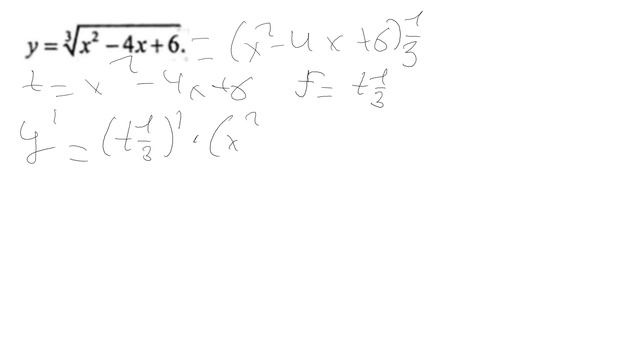 y = ∛(x² − 4x + 6). = (x² − 4x + 6)^(1/3)
t = x² − 4x + 6 f = t^(1/3)
y' = (t^(1/3))' · (x²